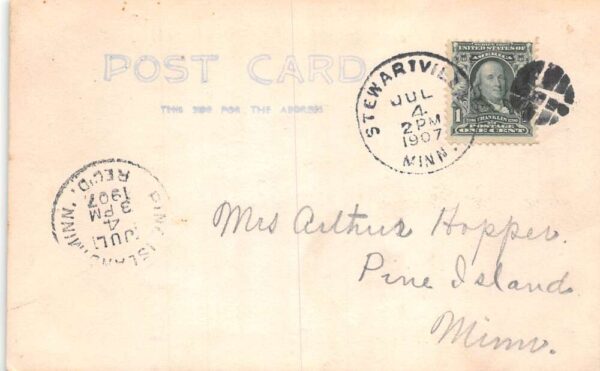 POST CARD
THIS SIDE FOR THE ADDRESS
STEWARTVIL
MINN.
JUL
4
2 PM
1907
UNITED STATES OF
AMERICA
1
FRANKLIN
POSTAGE
ONE CENT
PINE ISLAND, MINN.
REC'D.
JUL
4
3 PM
1907
Mrs Arthur Hopper.
Pine Island
Minn.